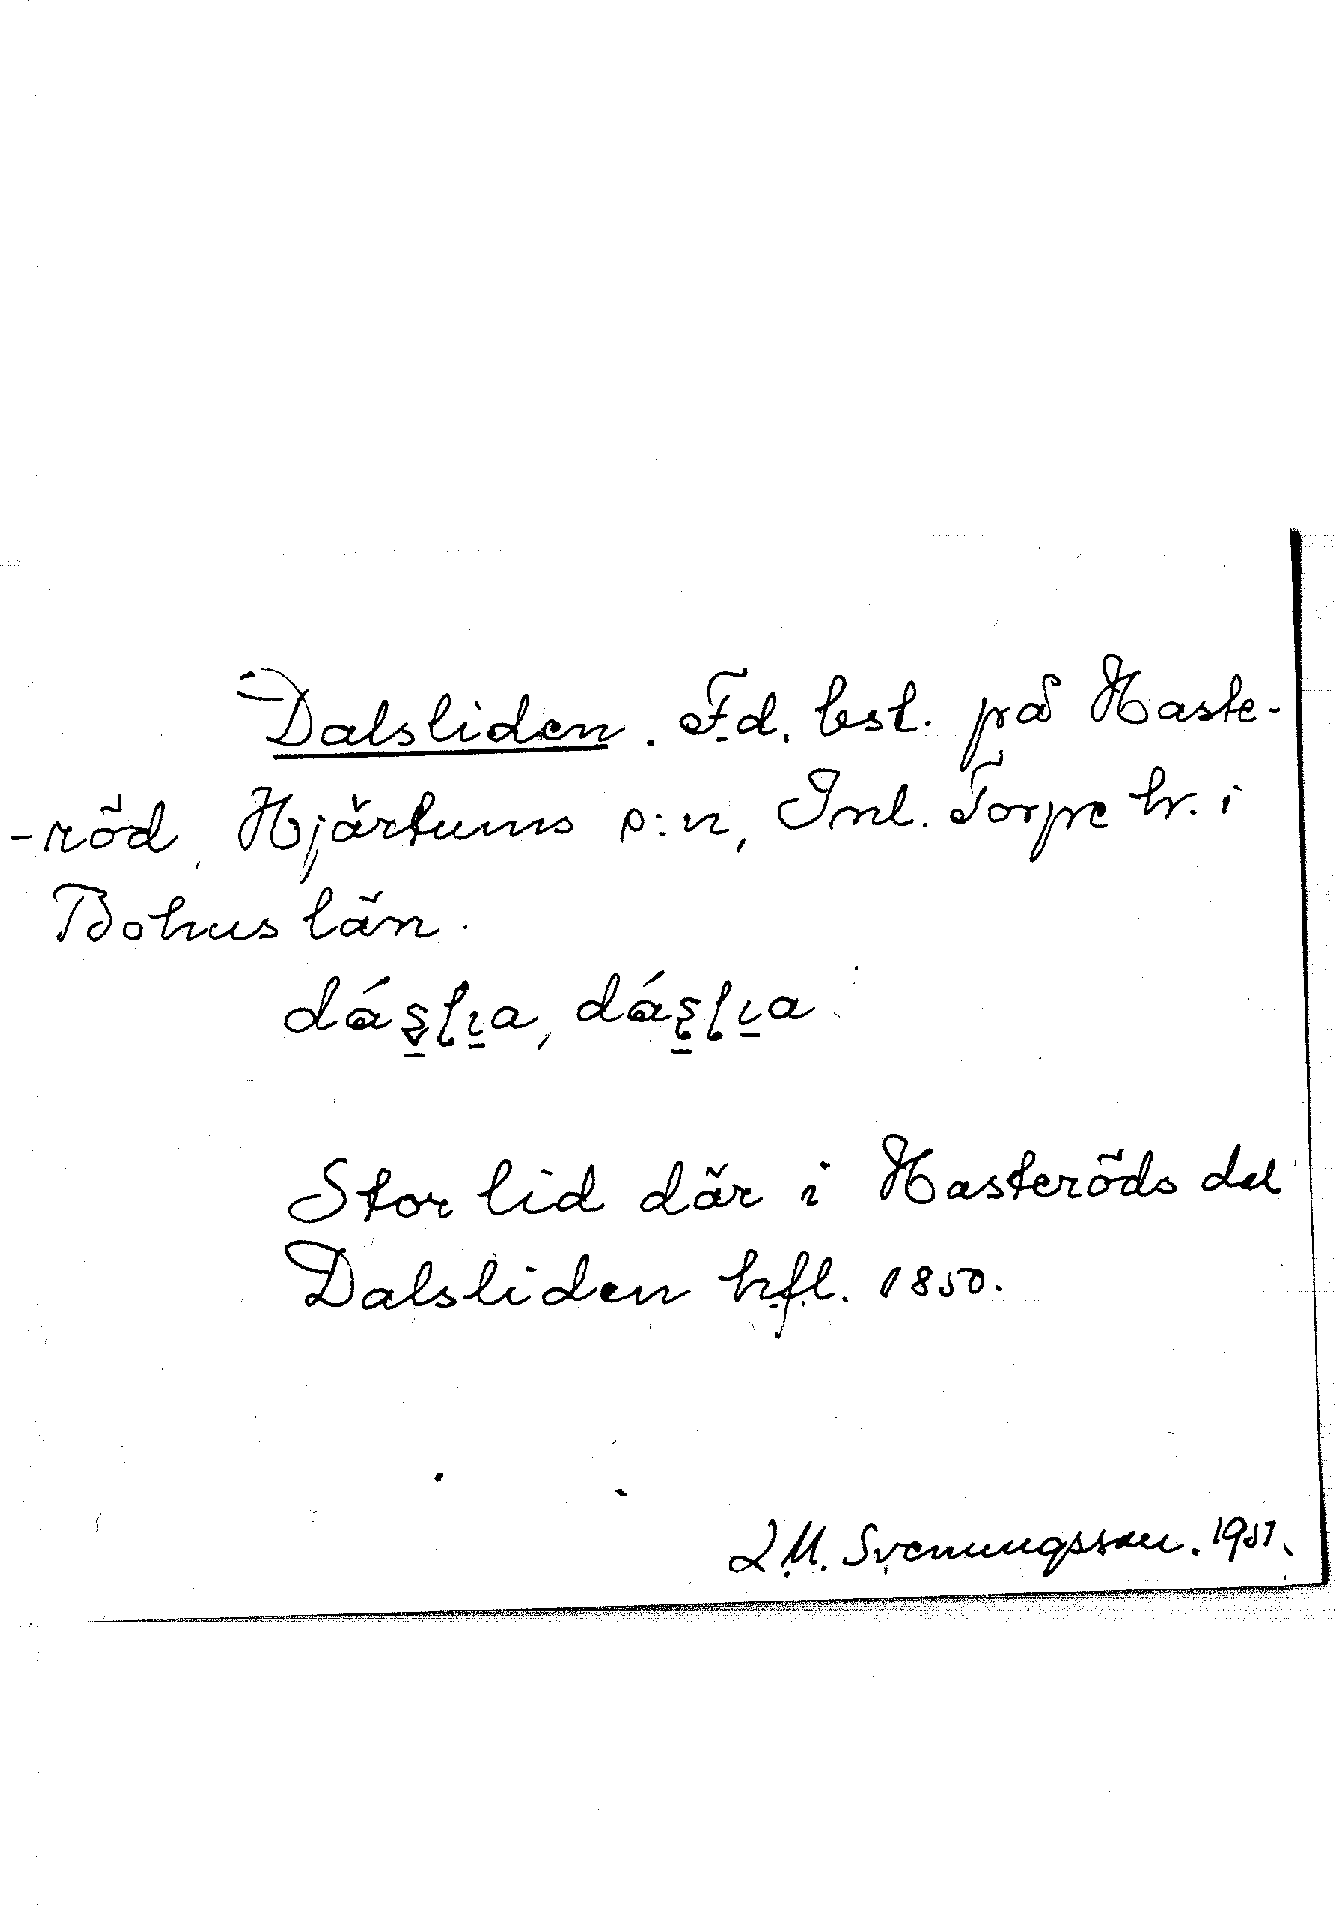 Dalsliden. F.d. bst. på Haste-
-röd, Hjärtums s:n, Inl. Torpe hr. i
Bohuslän.
Stor lid där i Hasteröds dal
Dalsliden hfl. 1850.
L.M. Svenungsson. 1951.